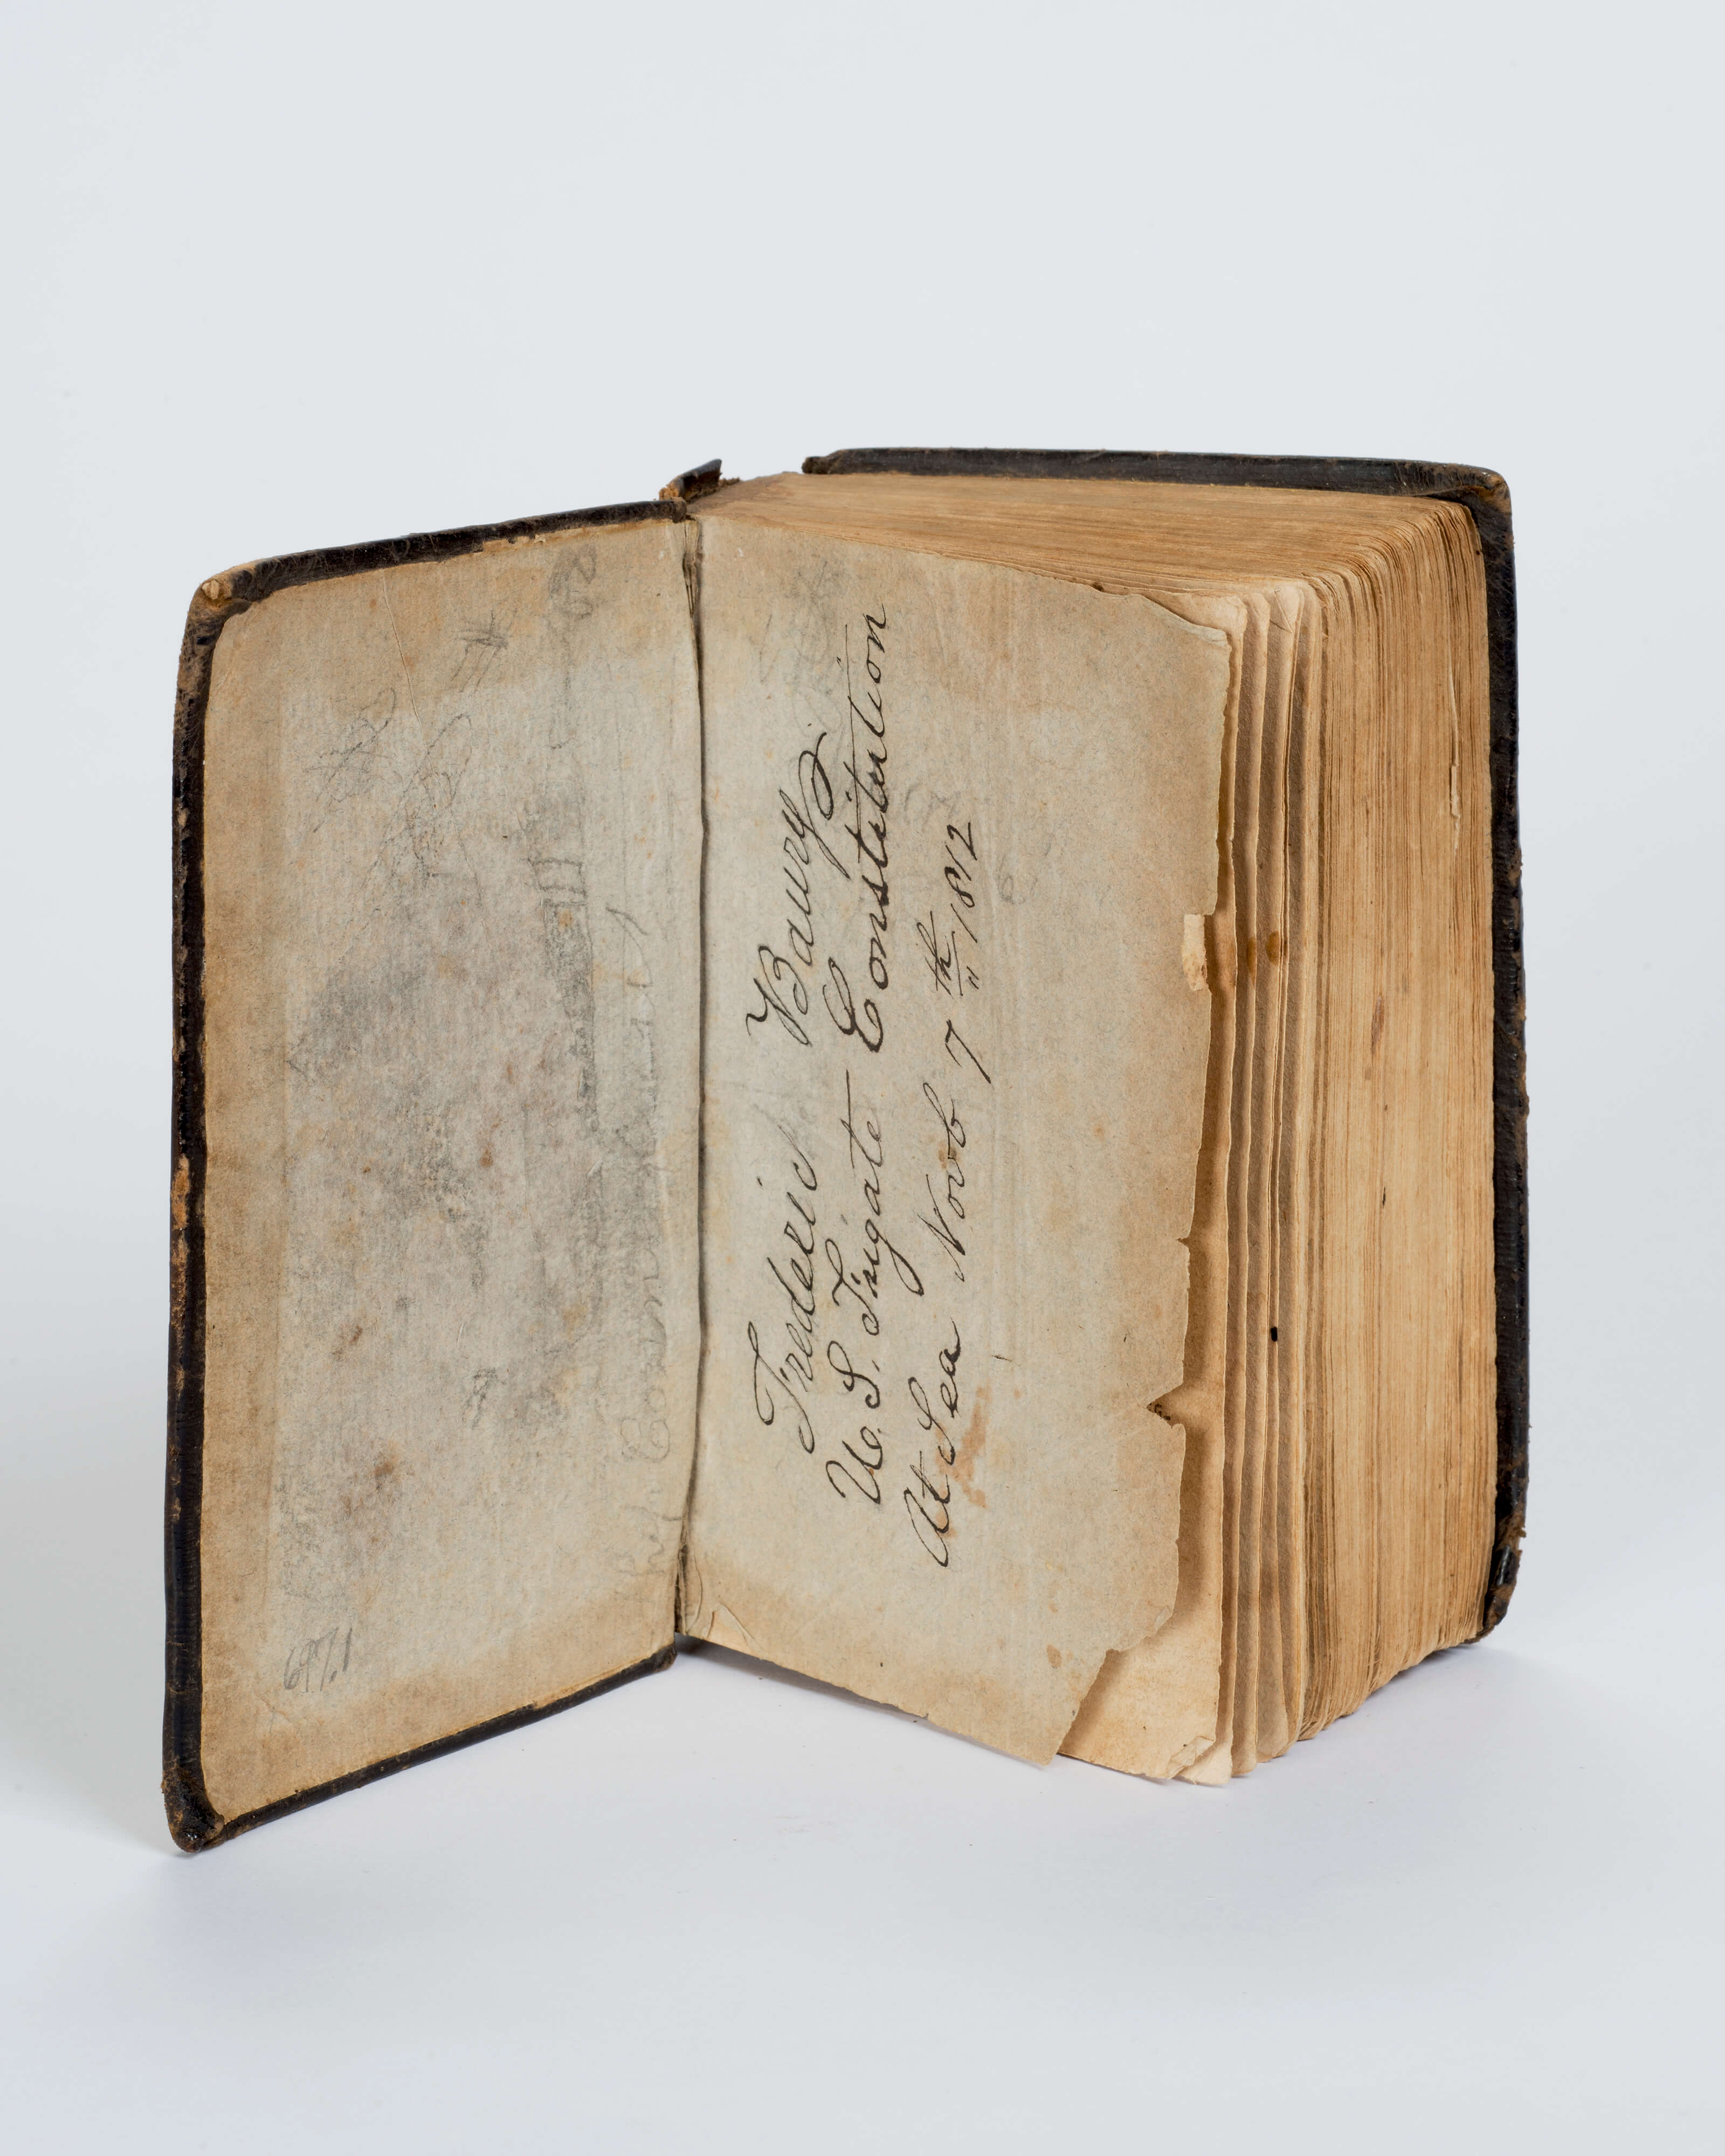 Frederick Baury
U. S. Frigate Constitution
At Sea Novb 7th 1812
697.1